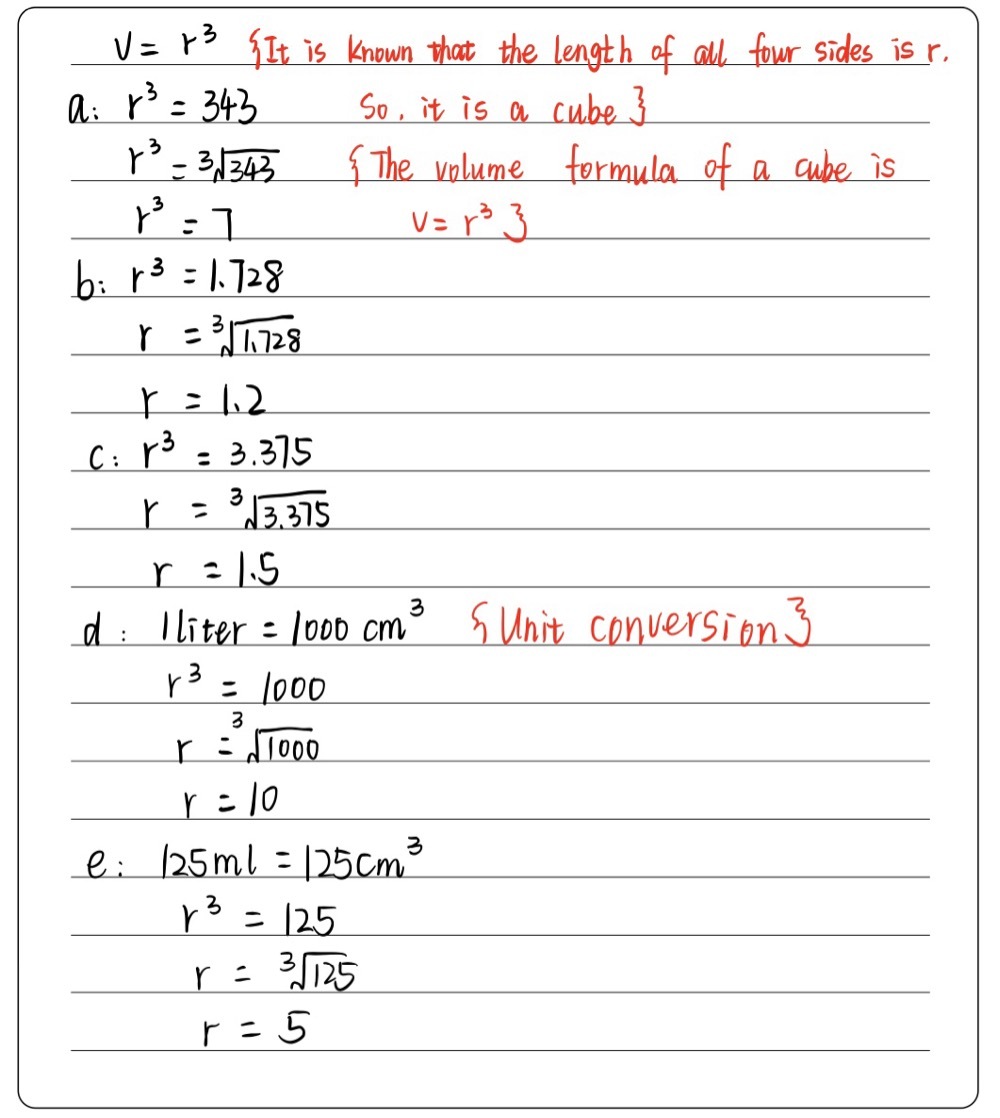 V = r³ {It is known that the length of all four sides is r.
a: r³ = 343 So, it is a cube}
r³ = ³√343 {The volume formula of a cube is
r³ = 7 V = r³}
b: r³ = 1.728
r = ³√1.728
r = 1.2
c: r³ = 3.375
r = ³√3.375
r = 1.5
d: 1 liter = 1000 cm³ {Unit conversion}
r³ = 1000
r = ³√1000
r = 10
e: 125ml = 125cm³
r³ = 125
r = ³√125
r = 5